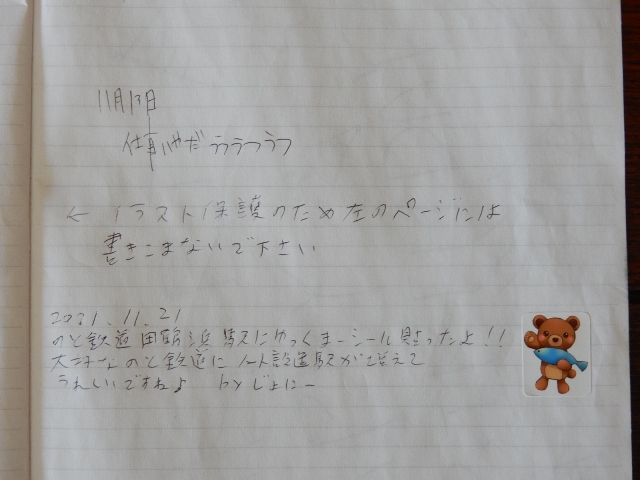 11月17日
仕事いやだ
← イラスト保護のため左のページには
書きこまないで下さい
2021.11.21
のと鉄道田鶴浜駅にゆっくまーシール貼ったよ!!
大好きなのと鉄道にノート設置駅が増えて
うれしいですね♪ byじょにー